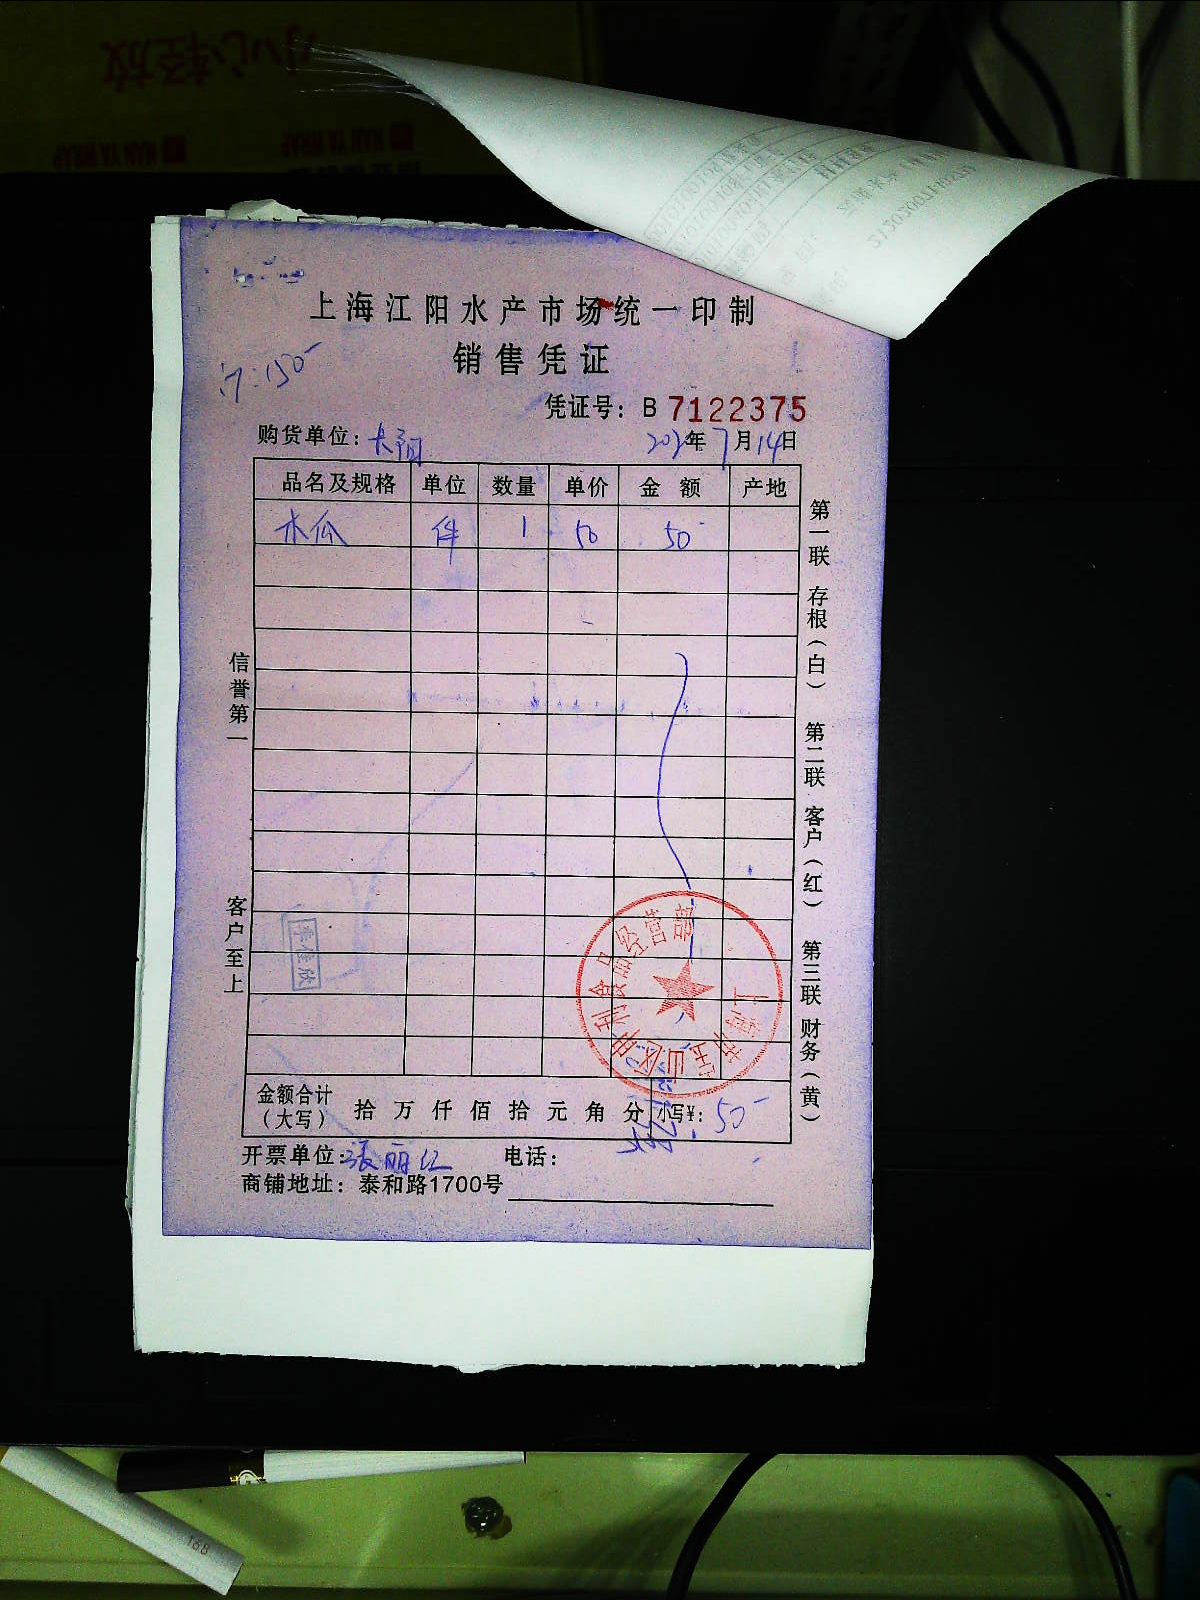 小心轻放
NAN YA WRAP
NAN YA WRAP
上海江阳水产市场统一印制
销售凭证
150
凭证号：B 7122375
购货单位：
年7月14日
品名及规格 单位 数量 单价 金 额 产地
木瓜 件 1 50 50
第一联 存根（白） 第二联 客户（红） 第三联 财务（黄）
信誉第一
客户至上
李佳欣
上海市宝山区申利食品经营部
金额合计（大写） 拾 万 仟 佰 拾 元 角 分 小写¥：50
开票单位：张丽红 电话：
商铺地址：泰和路1700号
168